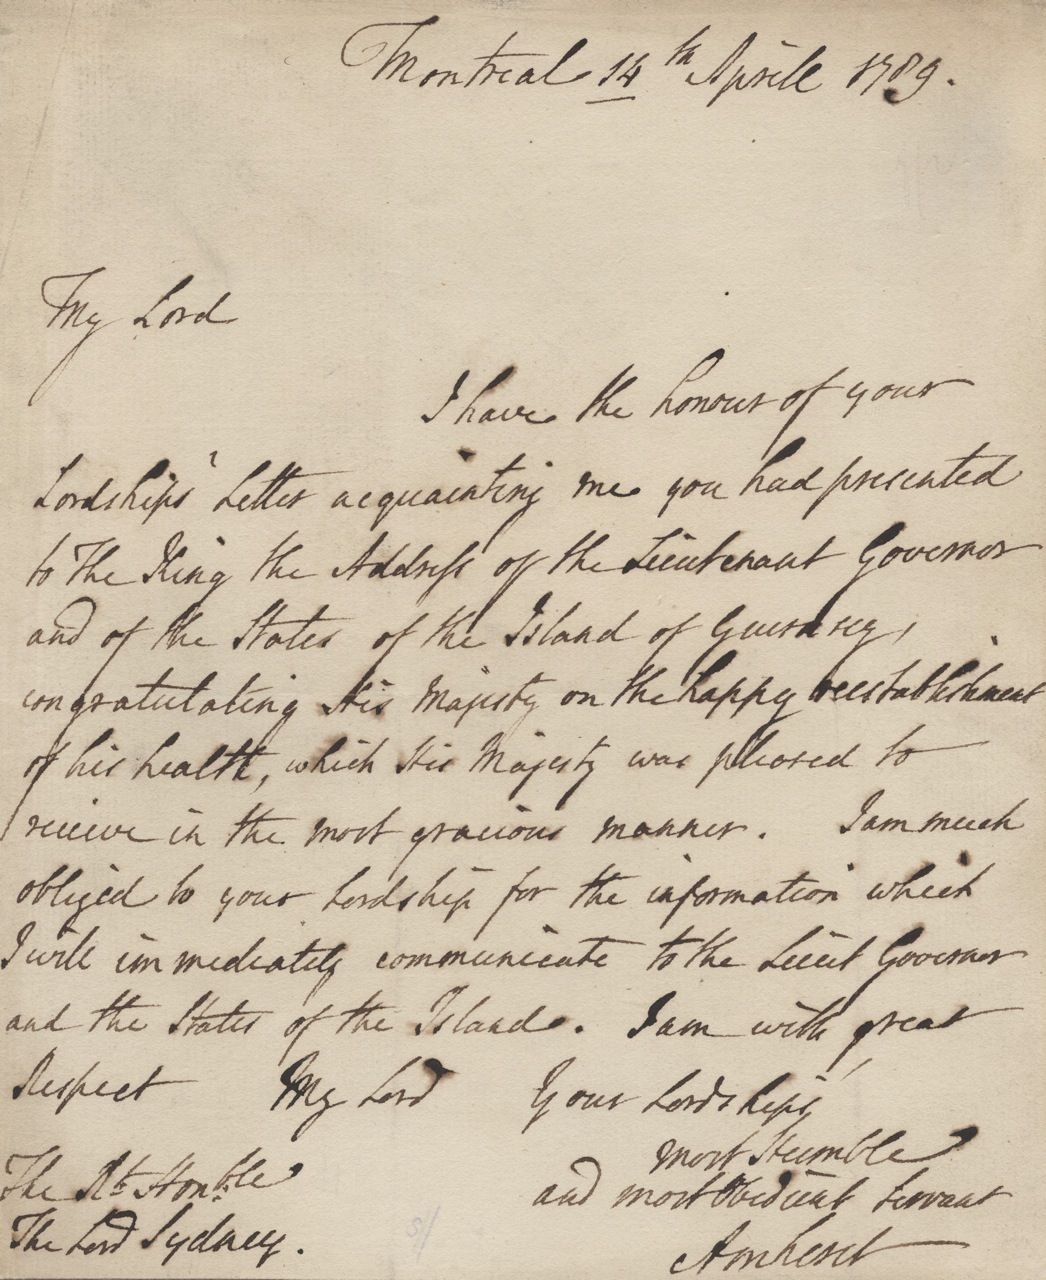 Montreal 14th Aprill 1789.
My Lord
I have the honour of your
Lordships' Letter acquainting me you had presented
to The King the Address of the Lieutenant Governor
and of the States of the Island of Guernsey,
congratulating His Majesty on the happy reestablishment
of his health, which His Majesty was pleased to
receive in the most gracious manner. I am much
obliged to your Lordship for the information which
I will immediately communicate to the Lieut Governor
and the States of the Island. I am with great
Respect My Lord Your Lordships'
most Humble
and most Obedient Servant
Amherst
The Rt. Honble
The Lord Sydney.